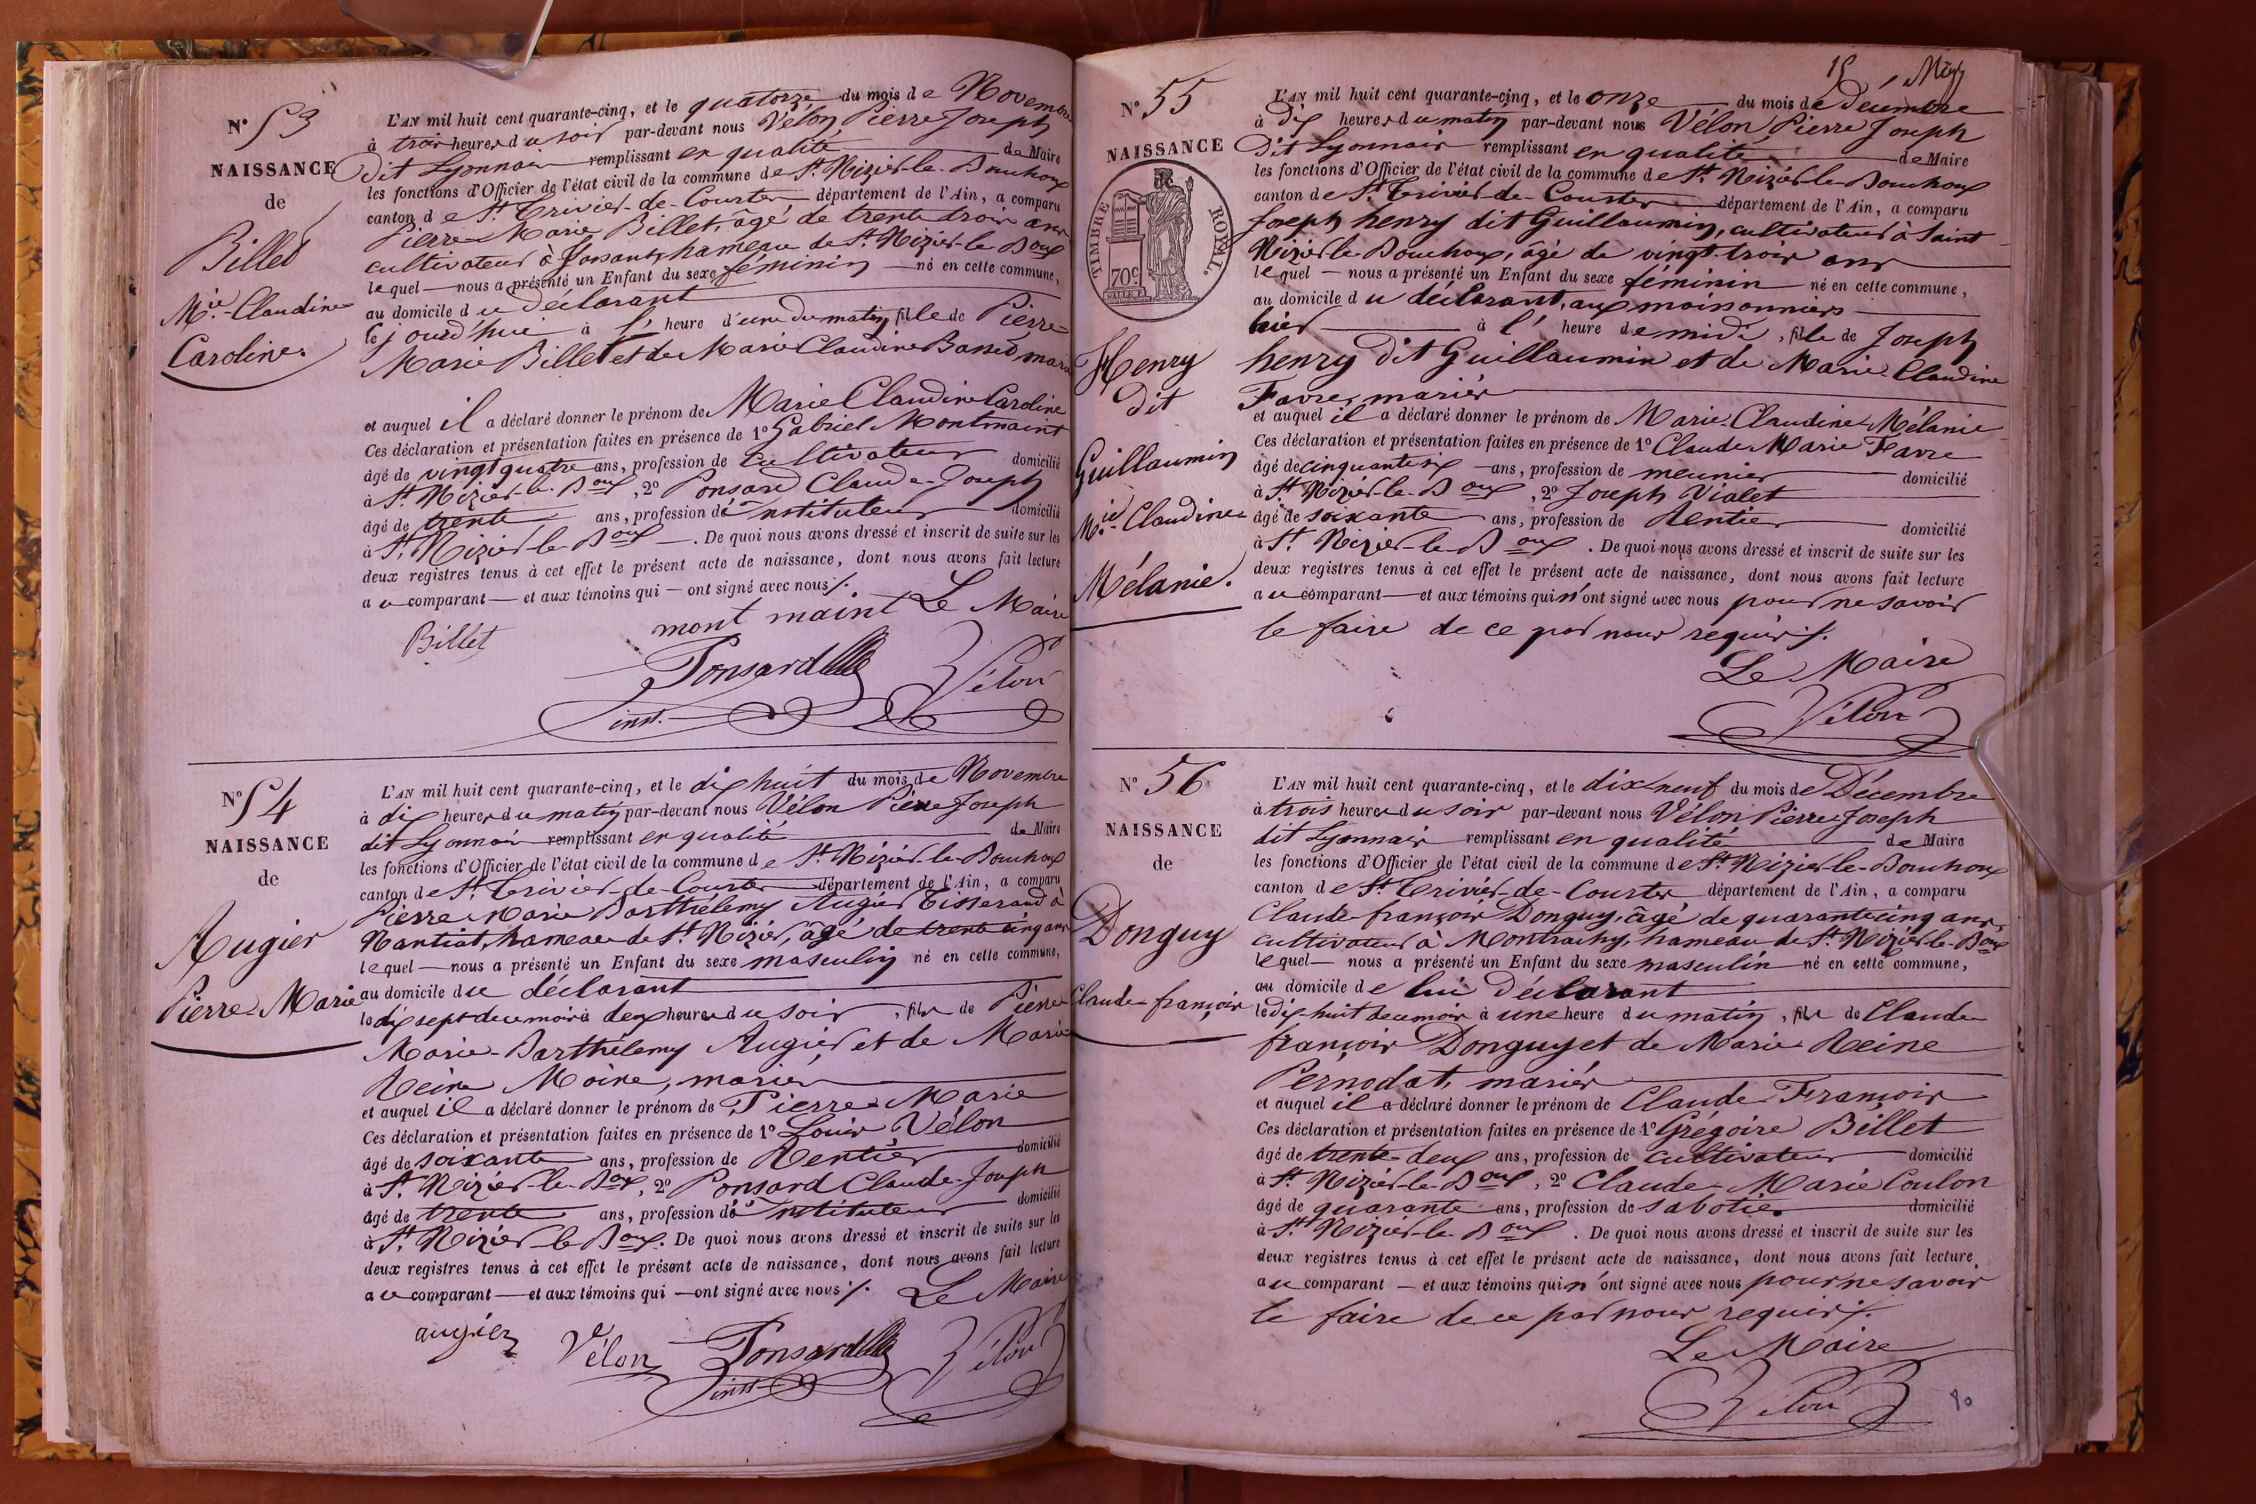 N° 53
NAISSANCE
de
Billet
M.ie Claudine
Caroline.
L'AN mil huit cent quarante-cinq, et le quatorze du mois de Novembre
à trois heures du soir par-devant nous Vélon Pierre Joseph
dit Lyonnais remplissant en qualité de Maire
les fonctions d'Officier de l'état civil de la commune de St. Nizier-le-Bouchoux
canton de St. Trivier-de-Courtes département de l'Ain, a comparu
Pierre Marie Billet, âgé de trente trois ans
cultivateur à hameau de St. Nizier-le-Boux
lequel nous a présenté un Enfant du sexe féminin né en cette commune,
au domicile du déclarant
ce jourd'hui à l' heure d'une du matin, fille de Pierre
Marie Billet et de Marie Claudine mariés
et auquel il a déclaré donner le prénom de Marie Claudine Caroline
Ces déclaration et présentation faites en présence de 1° Gabriel Montmaint
âgé de vingt quatre ans, profession de Cultivateur domicilié
à St. Nizier-le-Boux, 2° Ponsard Claude-Joseph
âgé de trente ans, profession d'instituteur domicilié
à St. Nizier-le-Boux. De quoi nous avons dressé et inscrit de suite sur les
deux registres tenus à cet effet le présent acte de naissance, dont nous avons fait lecture
au comparant et aux témoins qui ont signé avec nous ./.
mont maint Le Maire
Billet
Ponsard Vélon
inst.
N° 54
NAISSANCE
de
Augier
Pierre-Marie
L'AN mil huit cent quarante-cinq, et le dix huit du mois de Novembre
à dix heures du matin par-devant nous Vélon Pierre Joseph
dit Lyonnais remplissant en qualité de Maire
les fonctions d'Officier de l'état civil de la commune de St. Nizier-le-Bouchoux
canton de St. Trivier-de-Courtes département de l'Ain, a comparu
Pierre Marie Barthélemy Augier Tisserand à
Nantiat, hameau de St. Nizier, âgé de trente cinq ans
lequel nous a présenté un Enfant du sexe masculin né en cette commune,
au domicile du déclarant
le dix sept du mois à deux heures du soir, fils de Pierre
Marie-Barthélemy Augier et de Marie
Reine Moine, mariés
et auquel il a déclaré donner le prénom de Pierre Marie
Ces déclaration et présentation faites en présence de 1° Louis Vélon
âgé de soixante ans, profession de Rentier domicilié
à St. Nizier-le-Boux, 2° Ponsard Claude-Joseph
âgé de trente ans, profession d'instituteur domicilié
à St. Nizier-le-Boux. De quoi nous avons dressé et inscrit de suite sur les
deux registres tenus à cet effet le présent acte de naissance, dont nous avons fait lecture
au comparant et aux témoins qui ont signé avec nous ./. Le Maire
augier Vélon Ponsard Vélon
inst
15
N° 55
NAISSANCE
TIMBRE ROYAL.
70c
Henry
dit
Guillaumin
M.ie Claudine
Mélanie.
L'AN mil huit cent quarante-cinq, et le onze du mois de Décembre
à dix heures du matin par-devant nous Vélon Pierre Joseph
Dit Lyonnais remplissant en qualité de Maire
les fonctions d'Officier de l'état civil de la commune de St. Nizier-le-Bouchoux
canton de St. Trivier-de-Courtes département de l'Ain, a comparu
Joseph henry dit Guillaumin, cultivateur à Saint
Nizier le Bouchoux, âgé de vingt-trois ans
lequel nous a présenté un Enfant du sexe féminin né en cette commune,
au domicile du déclarant, aux moissonniers
hier à l' heure de midi, fille de Joseph
henry dit Guillaumin et de Marie Claudine
Favre, mariés
et auquel il a déclaré donner le prénom de Marie-Claudine Mélanie
Ces déclaration et présentation faites en présence de 1° Claude Marie Favre
âgé de cinquante six ans, profession de meunier domicilié
à St. Nizier-le-Boux, 2° Joseph Vialet
âgé de soixante ans, profession de Rentier domicilié
à St. Nizier-le-Boux. De quoi nous avons dressé et inscrit de suite sur les
deux registres tenus à cet effet le présent acte de naissance, dont nous avons fait lecture
au comparant et aux témoins qui n'ont signé avec nous pour ne savoir
le faire de ce par nous requis ./.
Le Maire
Vélon
N° 56
NAISSANCE
de
Donguy
Claude-françois
L'AN mil huit cent quarante-cinq, et le dix-neuf du mois de Décembre
à trois heures du soir par-devant nous Vélon Pierre Joseph
dit Lyonnais remplissant en qualité de Maire
les fonctions d'Officier de l'état civil de la commune de St. Nizier-le-Bouchoux
canton de St. Trivier-de-Courtes département de l'Ain, a comparu
Claude-françois Donguy, âgé de quarante cinq ans,
cultivateur à Montrachy, hameau de St. Nizier-le-Boux
lequel nous a présenté un Enfant du sexe masculin né en cette commune,
au domicile de lui déclarant
le dix-huit du mois à une heure du matin, fils de Claude
françois Donguy et de Marie Reine
Pernodat, mariés
et auquel il a déclaré donner le prénom de Claude François
Ces déclaration et présentation faites en présence de 1° Grégoire Billet
âgé de trente-deux ans, profession de cultivateur domicilié
à St. Nizier-le-Boux, 2° Claude-Marie Coulon
âgé de quarante ans, profession de sabotier domicilié
à St. Nizier-le-Boux. De quoi nous avons dressé et inscrit de suite sur les
deux registres tenus à cet effet le présent acte de naissance, dont nous avons fait lecture
au comparant et aux témoins qui n'ont signé avec nous pour ne savoir
le faire de ce par nous requis ./.
Le Maire
Vélon
80